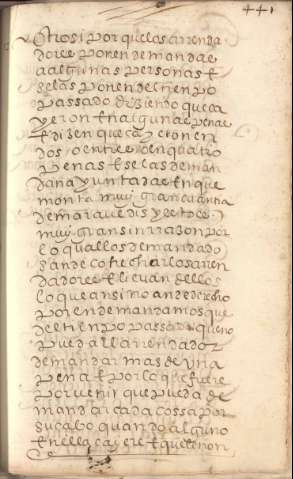 441
Otrosi por que los arrenda
dores ponen demandas
a algunas personas E
selas ponen del tienpo
passado diziendo que ca
yeron En algunas penas
E disen que cayeron en
dos o en tres o en quatro
penas E selas deman
dan ayuntadas En que
monta muy gran quantia
de maravedis y esto es
muy gran sin rrazon por
lo qual los demandados
an de cohechar los arren
dadores E lievan dellos
lo que ansi no an de derecho
por ende mandamos que
del tienpo passado que no
pueda El arrendador
demandar mas de una
pena E por lo que fuere
por venir que pueda de
mandar cada cossa por
su cabo quando alguno
En ella cayere E que le non